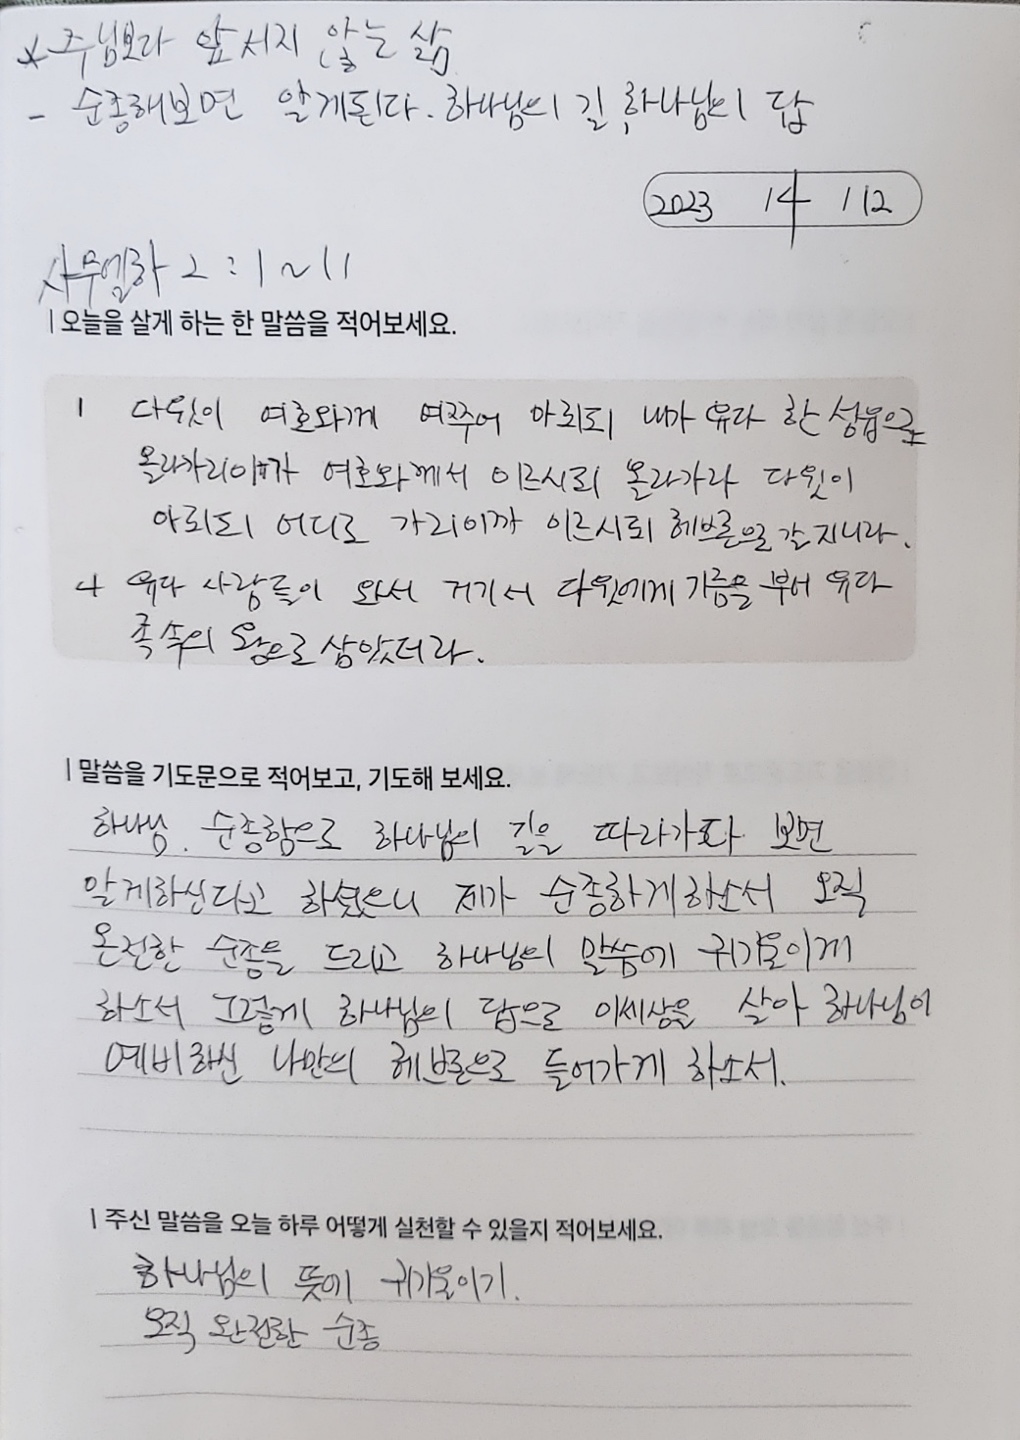 *주님보다 앞서지 않는 삶
- 순종해보면 알게된다. 하나님의 길, 하나님의 답
2023 /4 /12
사무엘하 2:1~11
|오늘을 살게 하는 한 말씀을 적어보세요.
1 다윗이 여호와께 여쭈어 아뢰되 내가 유다 한 성읍으로
올라가리이까 여호와께서 이르시되 올라가라 다윗이
아뢰되 어디로 가리이까 이르시되 헤브론으로 갈지니라.
4 유다 사람들이 와서 거기서 다윗에게 기름을 부어 유다
족속의 왕으로 삼았더라.
|말씀을 기도문으로 적어보고, 기도해 보세요.
하나님. 순종함으로 하나님의 길을 따라가다 보면
알게하신다고 하셨으니 제가 순종하게하소서 오직
온전한 순종을 드리고 하나님의 말씀에 귀기울이게
하소서 그렇게 하나님의 답으로 이세상을 살아 하나님이
예비하신 나만의 헤브론으로 들어가게 하소서.
|주신 말씀을 오늘 하루 어떻게 실천할 수 있을지 적어보세요.
하나님의 뜻에 귀기울이기.
오직 완전한 순종